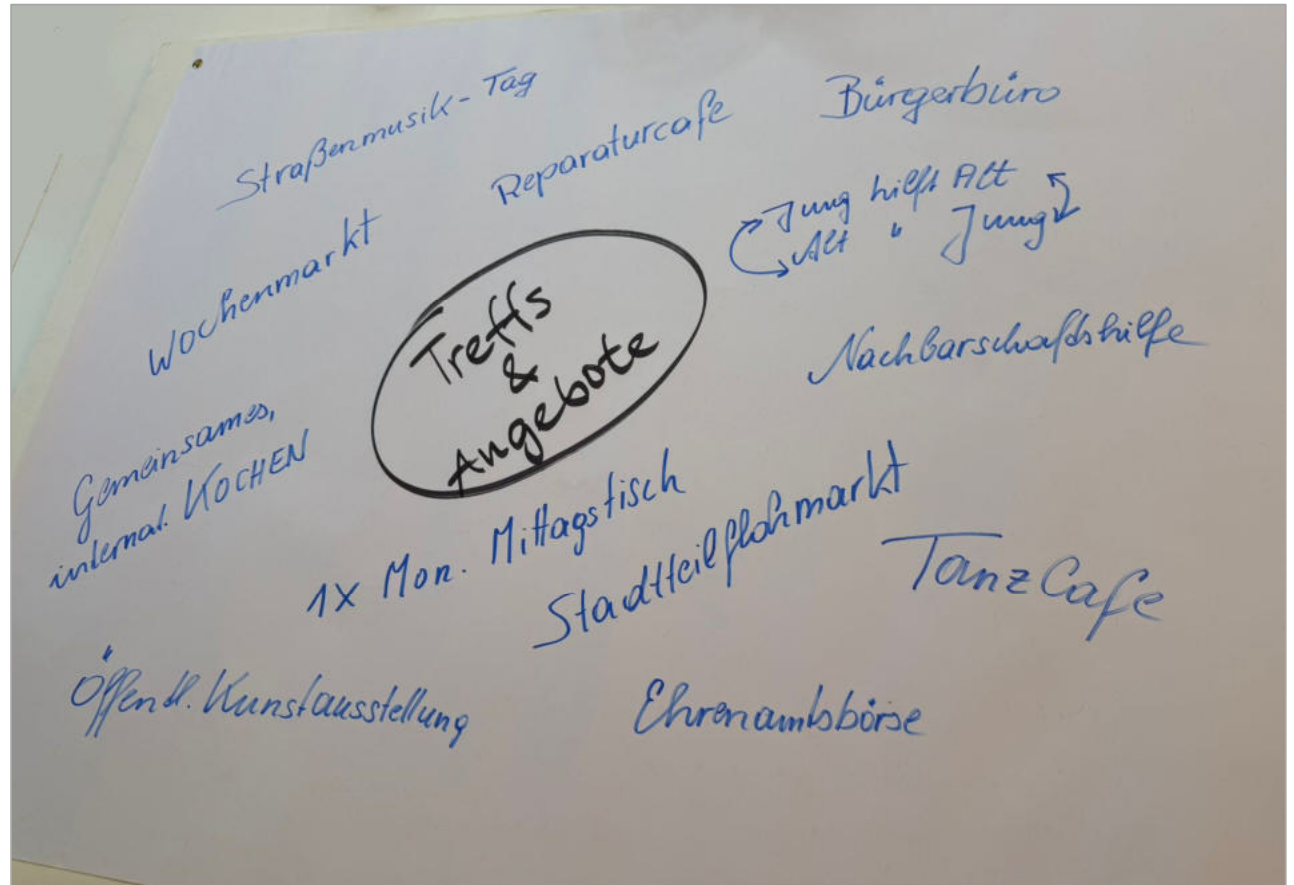 Straßenmusik-Tag
Reparaturcafe
Bürgerbüro
Jung hilft Alt
Alt " Jung
Wochenmarkt
Treffs
&
Angebote
Nachbarschaftshilfe
Gemeinsames,
internat. KOCHEN
1x Mon. Mittagstisch
Stadtteilflohmarkt
TanzCafe
Öffentl. Kunstausstellung
Ehrenamtsbörse